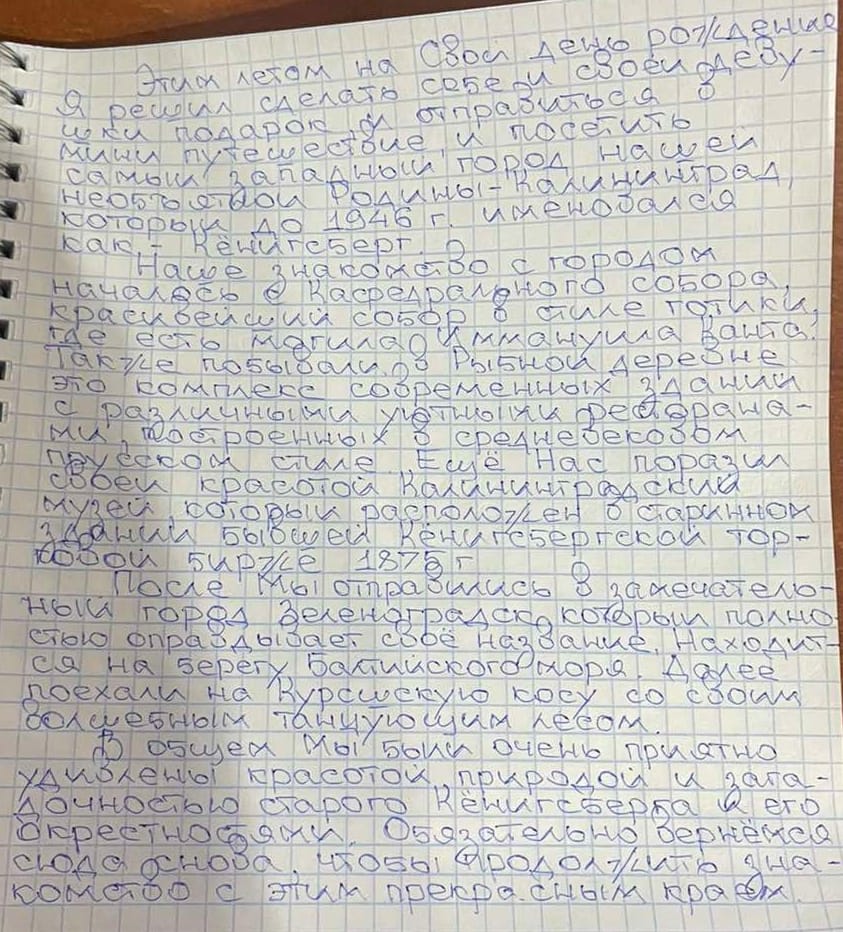 Этим летом на Свой день рождения
Я решил сделать себе и своей деву-
шки подарок и отправиться в
мини путешествие, и посетить
самый западный город нашей
необъятной Родины - Калининград,
который до 1946 г. именовался
как - Кёнигсберг.
Наше знакомство с городом
началось с Кафедрального собора,
красивейший собор в стиле готики,
где есть могила Иммануила Канта.
Также побывали в Рыбной деревне
это комплекс современных зданий
с различными уютными рестора-
ми, построенных в средневековом
прусском стиле. Ещё Нас поразил
своей красотой Калининградский
музей, который расположен в старинном
здании бывшей Кёнигсбергской тор-
говой бирже 1875 г
После Мы отправились в замечатель-
ный город Зеленоградск, который полно
стью оправдывает своё название. Находит-
ся на берегу Балтийского моря. Далее
поехали на Куршскую косу со своим
волшебным танцующим лесом.
В общем Мы были очень приятно
удивлены красотой, природой и зага-
дочностью старого Кёнигсберга и его
окрестностями. Обязательно вернёмся
сюда снова, чтобы продолжить зна-
комство с этим прекрасным краем.